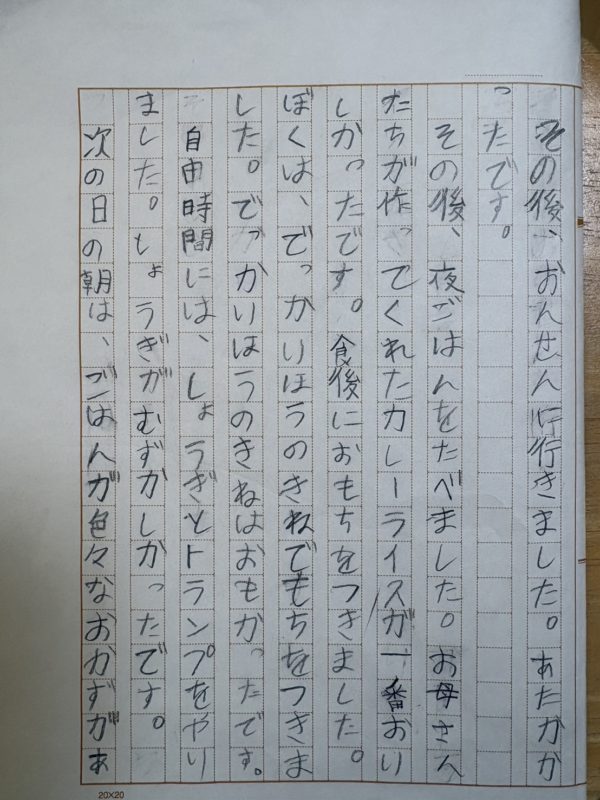 その後、おんせんに行きました。あたたか
ったです。
その後、夜ごはんをたべました。お母さん
たちが作ってくれたカレーライスが一番おい
しかったです。食後におもちをつきました。
ぼくは、でっかいほうのきねでもちをつきま
した。でっかいほうのきねはおもかったです。
自由時間には、しょうぎとトランプをやり
ました。しょうぎがむずかしかったです。
次の日の朝は、ごはんが色々なおかずがあ
20×20